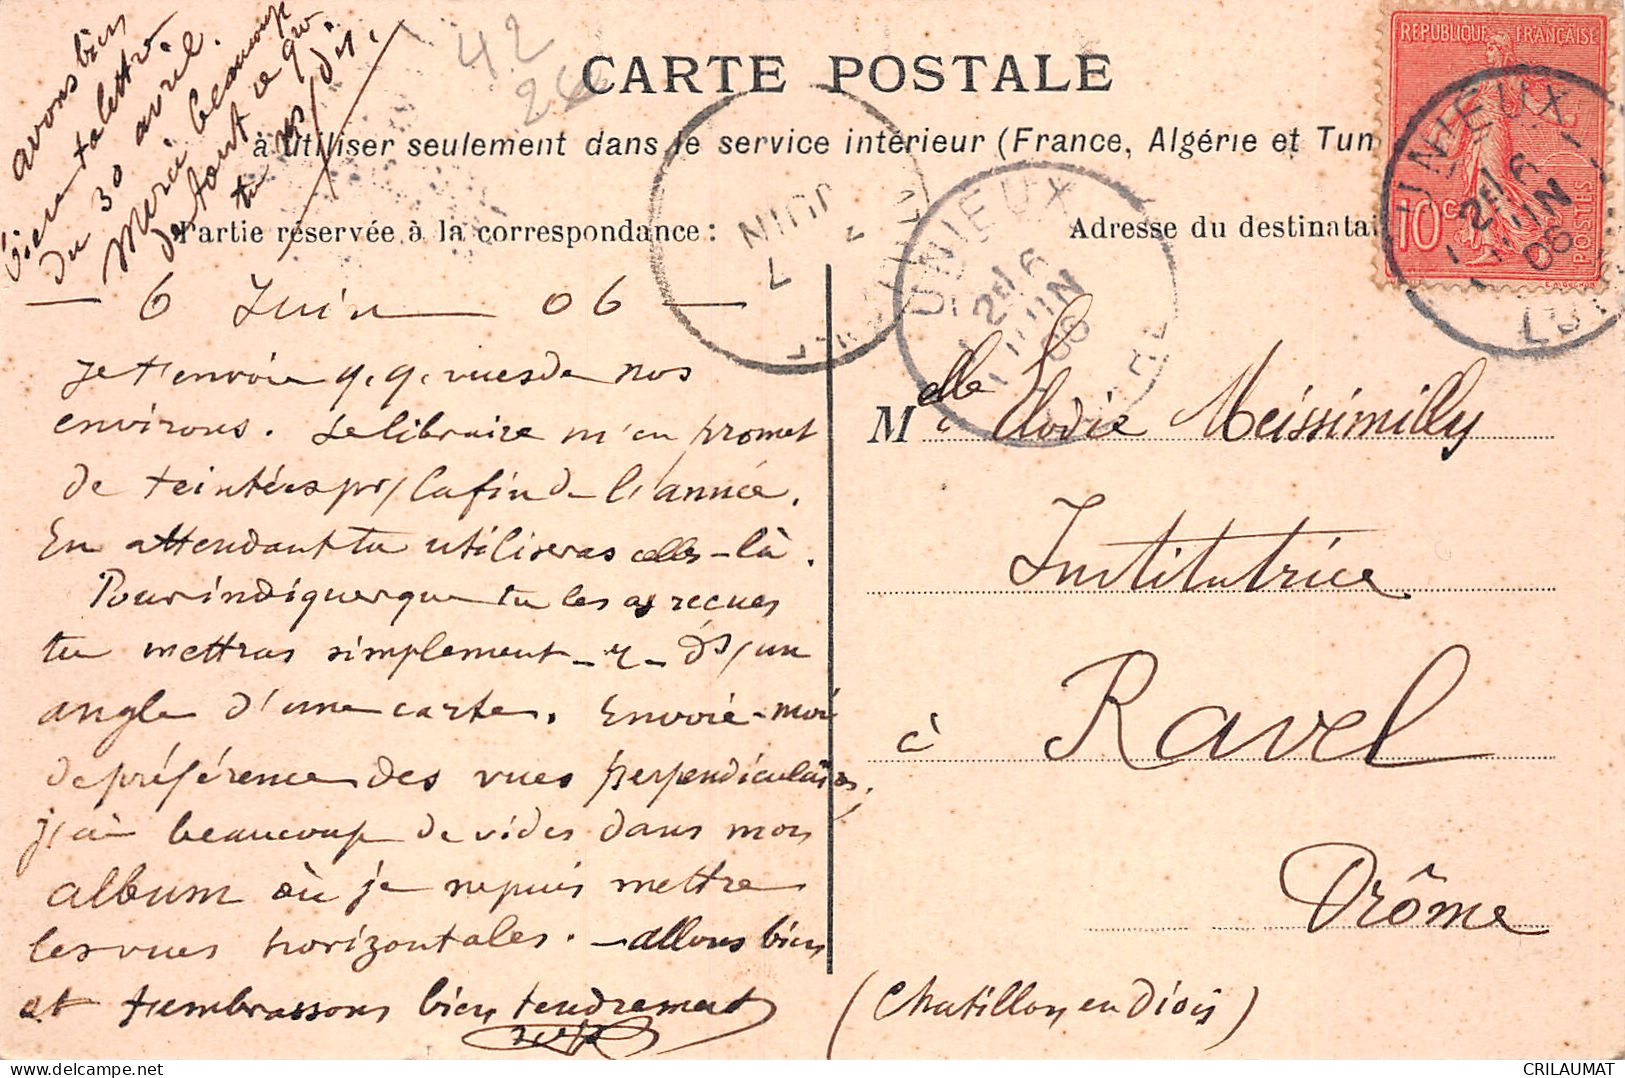 avons bien
reçu ta lettre
du 30 avril.
Merci beaucoup
de tout ce que
tu ns/ dis.
42
26
CARTE POSTALE
à utiliser seulement dans le service intérieur (France, Algérie et Tun
Partie réservée à la correspondance :
Adresse du destinatai
REPUBLIQUE FRANÇAISE
10c
POSTES
UNIEUX
6
JUIN
06
UNIEUX
6
JUIN
06
7
JUIN
— 6 Juin — 06 —
Je t'envoie q.q. vues de nos
environs. Le libraire m'en promet
de teintées pr/ la fin de l'année.
En attendant tu utiliseras celles-là.
Pour indiquer que tu les as reçues
tu mettras simplement - r - ds/ un
angle d'une carte. Envoie-moi
de préférence des vues perpendiculaires,
j'ai beaucoup de vides dans mon
album où je ne puis mettre
les vues horizontales. - allons bien
et t'embrassons bien tendrement
Mlle Elodie Meissimilly
Institutrice
à Ravel
Drôme
(Chatillon en Diois)
CRILAUMAT